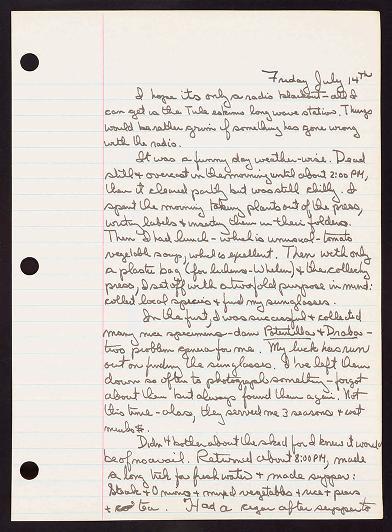 Friday July 14th
I hope its only a radio blackout - all I
can get is the Tule eskimo long wave station. Things
would be rather grim if something has gone wrong
with the radio.
It was a funny day weather-wise. Dead
still & overcast in the morning until about 2:00 PM,
then it cleared partly but was still chilly. I
spent the morning taking plants out of the press,
writing labels & inserting them in their folders.
Then I had lunch - which is unusual - tomato
vegetable soup, which is excellent. Then with only
a plastic bag (for lichens - Whelen) & the collecting
press, I set off with a twofold purpose in mind:
collect local species & find my sunglasses.
In the first, I was successful & collected
many nice specimens - damn Potentilla & Drabas -
two problem genera for me. My luck has run
out on finding the sunglasses. I've left them
down so often to photograph something - forgot
about them but always found them again. Not
this time - alas, they served me 3 seasons & cost
much $.
Didn't bother about the sked for I knew it would
be of no avail. Returned about 8:00 PM, made
a long trek for fresh water & made supper:
Steak & Onions & mixed vegetables & rice & pears
& tea. Had a cigar after supper to